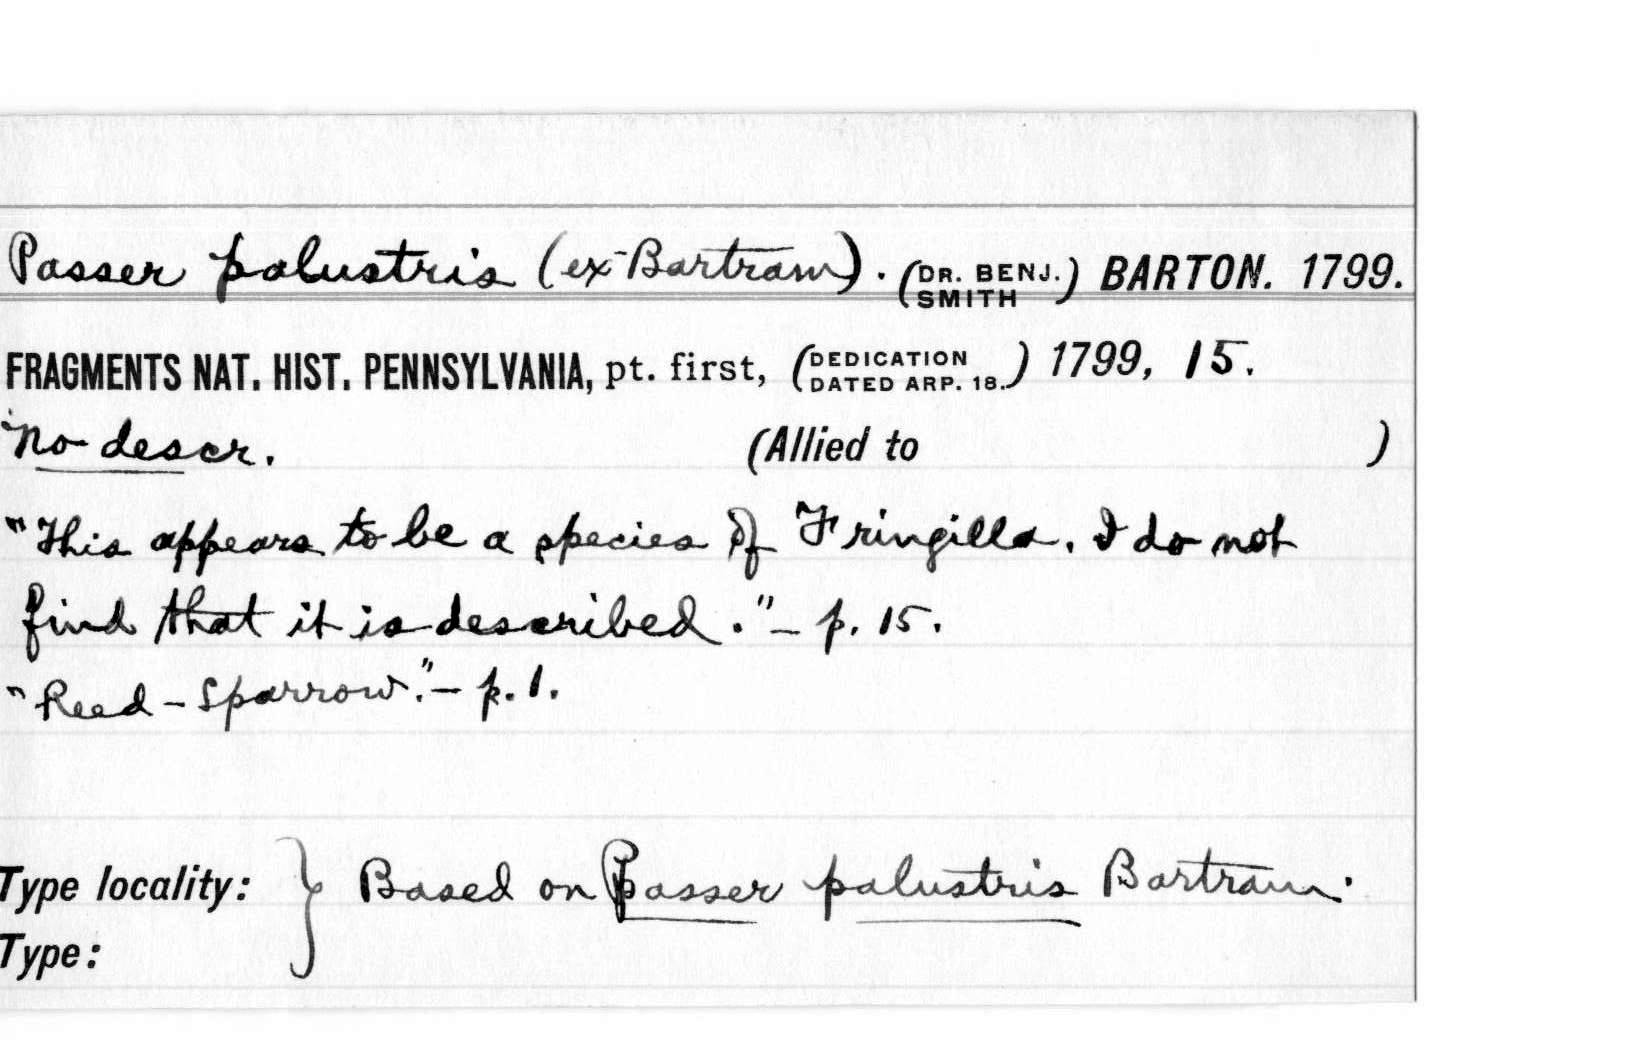 Passer palustris (ex Bartram). (DR. BENJ. SMITH) BARTON. 1799.
FRAGMENTS NAT. HIST. PENNSYLVANIA, pt. first, (DEDICATION DATED ARP. 18.) 1799, 15.
No descr. (Allied to )
"This appears to be a species of Fringilla. I do not
find that it is described." — p. 15.
"Reed-Sparrow." — p. 1.
Type locality: } Based on Passer palustris Bartram.
Type: